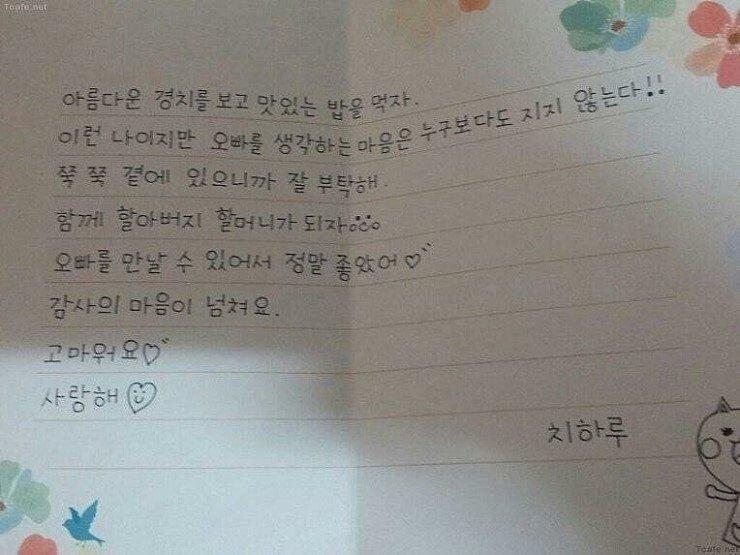 Toafe.net
아름다운 경치를 보고 맛있는 밥을 먹자.
이런 나이지만 오빠를 생각하는 마음은 누구보다도 지지 않는다!!
쭉 쭉 곁에 있으니까 잘 부탁해.
함께 할아버지 할머니가 되자
오빠를 만날 수 있어서 정말 좋았어♡
감사의 마음이 넘쳐요.
고마워요♡
사랑해
치하루
Toafe.net